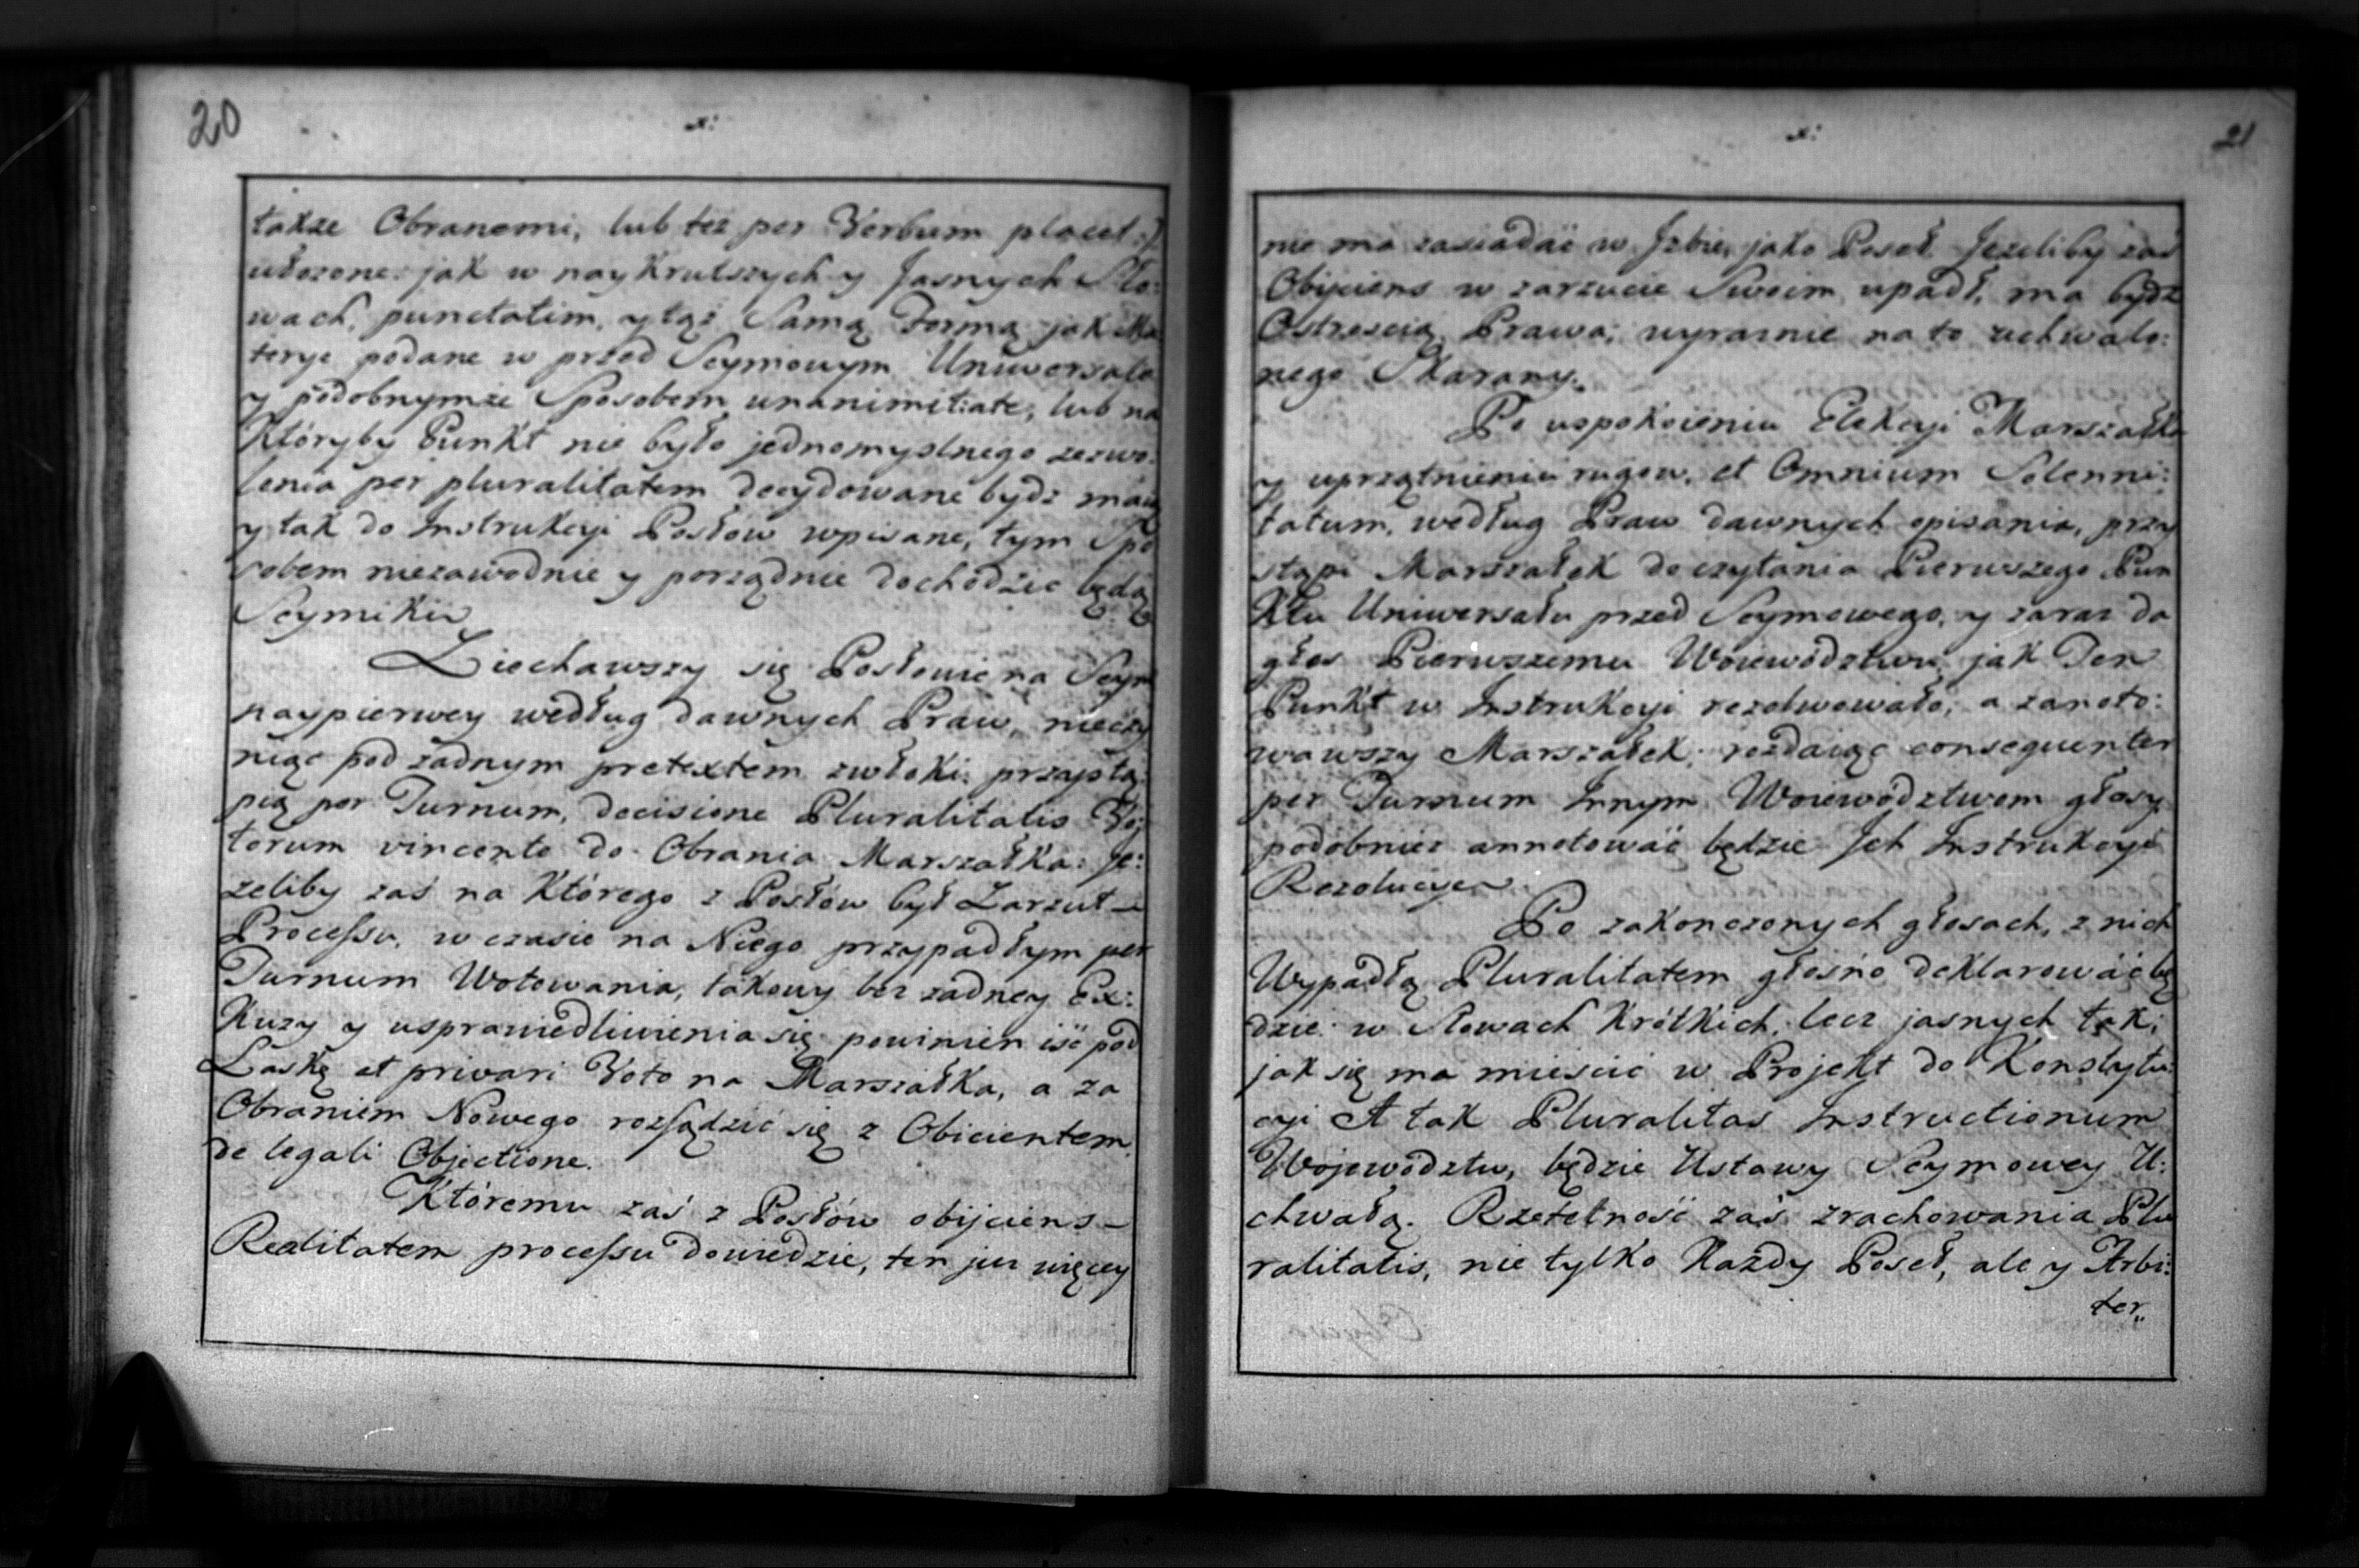 20
x:
także Obranemi, lub też per Verbum placet :/
ułozone: jak w naykrutszych y Jasnych Sło:
wach, punctatim, y tąż Samą Formą jak Ma
terye podane w przed Seymowym Uniwersale
y podobnymże Sposobem unanimitate, lub na
Któryby Punkt nie było jednomyslnego zezwo:
lenia per pluralitatem decydowane bydz maią
y tak do Instrukcyi Posłów wpisane, tym Spo
sobem niezawodnie y porządnie dochodzic będą
Seymiki
Ziechawszy się Posłowie na Seym
naypierwey według dawnych Praw, nieczy
niąc pod zadnym pretextem zwłoki: przystą:
pią per Turnum, decisione Pluralitatis Vo:
torum vincente do Obrania Marszałka: Je:
zeliby zaś na Którego z Posłów był Zarzut
Processu, w czasie na Niego przypadłym per
Turnum Wotowania, takowy bez zadney Ex:
Kuzy y usprawiedliwienia się powinien iśc pod
Laskę et privari Voto na Marszałka, a za
Obraniem Nowego rozsądzić się z Obicientem
de legali Objectione.
Któremu zaś z Posłów obijciens
Realitatem processu dowiedzie, ten juz więcey
x:
21
nie ma zasiadać w Izbie, jako Poseł Jezeliby zaś
Obijciens w zarzucie Swoim upadł, ma bydz
Ostrością Prawa; wyraznie na to uchwalo:
nego Skarany.
Po uspokoieniu Elekcyi Marszałka
y uprzątnieniu rugow, et Omnium Solenni:
tatum, według Praw dawnych opisania, przy
stąpi Marszałek do czytania Pierwszego Pun
Ktu Uniwersału przed Seymowego, y zaraz da
głos Pierwszemu Woiewództwu, jak Ten
Punkt w Instrukcyi rezolwowało; a zanoto:
wawszy Marszałek; rozdaiąc consequenter
per Turnum Innym Woiewództwom głosy
podobniez annotować będzie Ich Instrukcyi
Rezolucye.
Po zakonczonych głosach, z nich
Wypadłą Pluralitatem głosno deklarować bę
dzie w Słowach Krótkich, lecz jasnych tak;
jak się ma miescic w Projekt do Konstytu:
cyi A tak Pluralitas Instructionum
Wojewodztw, będzie Ustawy Seymowey U:
chwałą. Rzetelność zaś zrachowania Plu
ralitatis, nie tylko Każdy Poseł, ale y Arbi:
ter